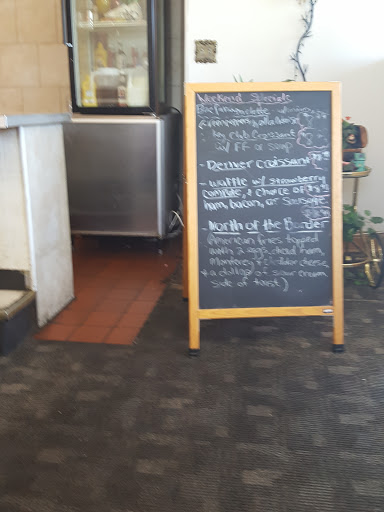 Weekend Specials
omelette
w/ hollandaise
club Croissant
w/ FF or soup
- Denver croissant
- waffle w/ strawberry
compote, & choice of
ham, bacon, or sausage
- North of the Border
(American fries topped
with 2 eggs, diced ham,
Monterey & cheddar cheese,
& a dollop of sour cream
side of toast)